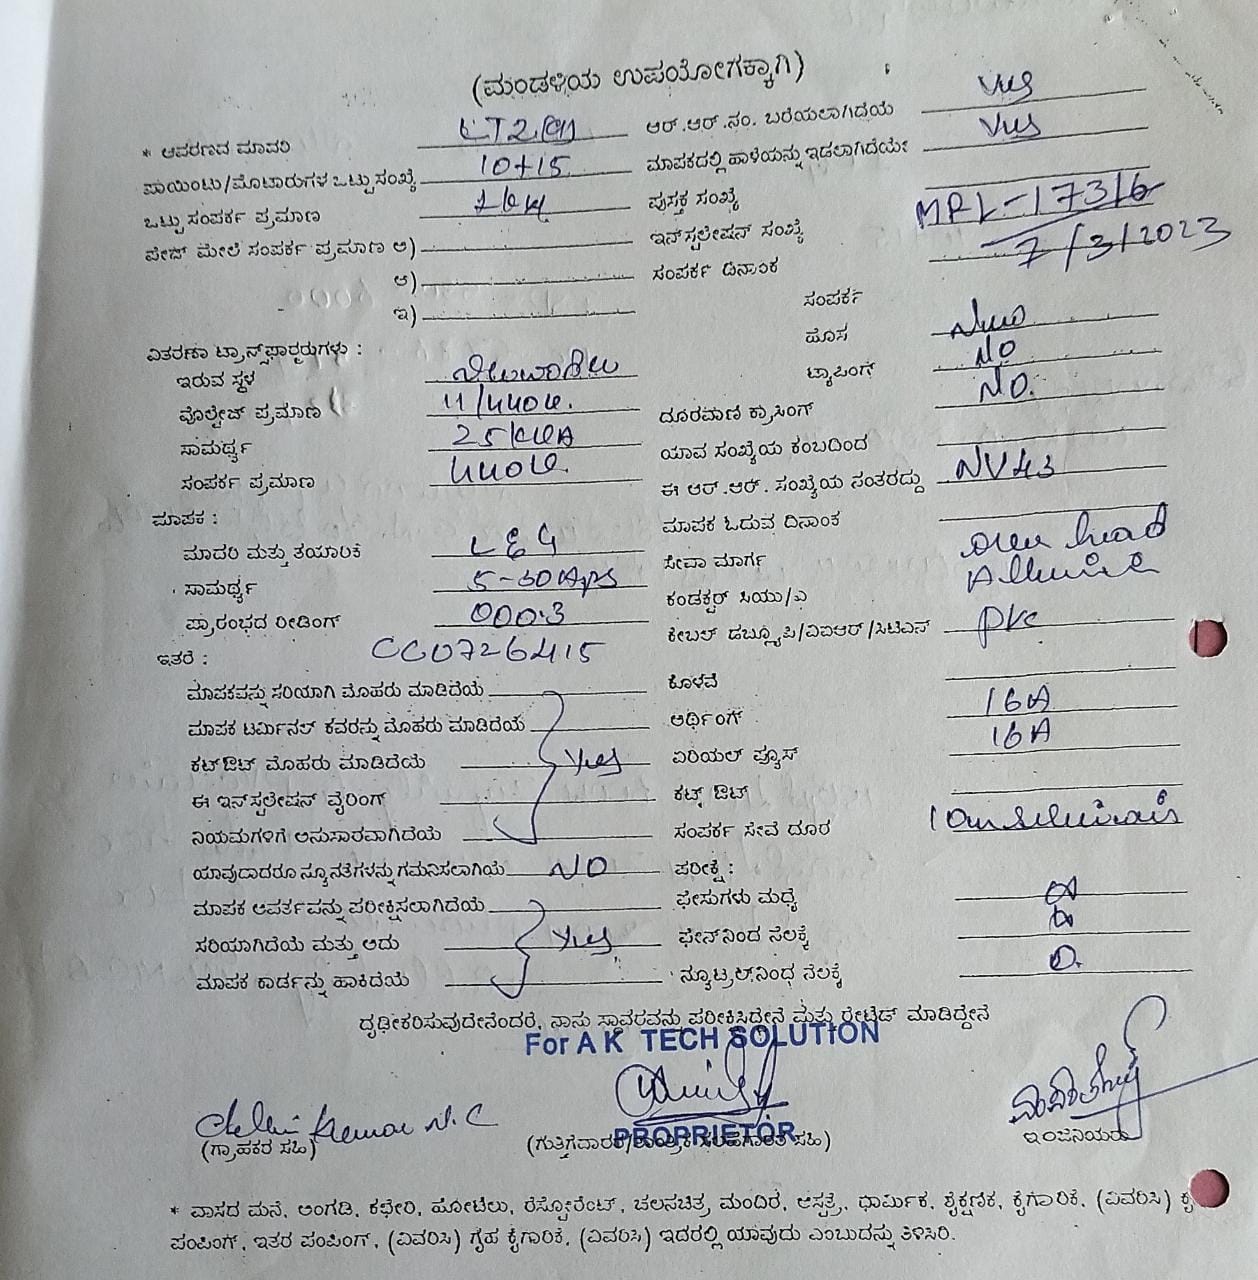 (ಮಂಡಳಿಯ ಉಪಯೋಗಕ್ಕಾಗಿ)
* ಆವರಣದ ಮಾದರಿ LT2(a)
ಪಾಯಿಂಟು/ಮೋಟಾರುಗಳ ಒಟ್ಟು ಸಂಖ್ಯೆ 10+15
ಒಟ್ಟು ಸಂಪರ್ಕ ಪ್ರಮಾಣ
ಪೇಜ್ ಮೇಲೆ ಸಂಪರ್ಕ ಪ್ರಮಾಣ ಅ)
ಆ)
ಇ)
ವಿತರಣಾ ಟ್ರಾನ್ಸ್‌ಫಾರ್ಮರುಗಳು :
ಇರುವ ಸ್ಥಳ
ವೊಲ್ಟೇಜ್ ಪ್ರಮಾಣ 11/440v.
ಸಾಮರ್ಥ್ಯ 25KVA
ಸಂಪರ್ಕ ಪ್ರಮಾಣ 440v.
ಮಾಪಕ :
ಮಾದರಿ ಮತ್ತು ತಯಾರಿಕೆ L&G
ಸಾಮರ್ಥ್ಯ 5-30Amps
ಪ್ರಾರಂಭದ ರೀಡಿಂಗ್ 000.3
ಇತರೆ : CC0726415
ಮಾಪಕವನ್ನು ಸರಿಯಾಗಿ ಮೊಹರು ಮಾಡಿದೆಯೆ
ಮಾಪಕ ಟರ್ಮಿನಲ್ ಕವರನ್ನು ಮೊಹರು ಮಾಡಿದೆಯೆ
ಕಟ್‌ಔಟ್ ಮೊಹರು ಮಾಡಿದೆಯೆ Yes
ಈ ಇನ್‌ಸ್ಟಲೇಷನ್ ವೈರಿಂಗ್
ನಿಯಮಗಳಿಗೆ ಅನುಸಾರವಾಗಿದೆಯೆ
ಯಾವುದಾದರೂ ನ್ಯೂನತೆಗಳನ್ನು ಗಮನಿಸಲಾಗಿಯೆ NO
ಮಾಪಕ ಆವರ್ತವನ್ನು ಪರೀಕ್ಷಿಸಲಾಗಿದೆಯೆ
ಸರಿಯಾಗಿದೆಯೆ ಮತ್ತು ಅದು Yes
ಮಾಪಕ ಕಾರ್ಡನ್ನು ಹಾಕಿದೆಯೆ
ಆರ್.ಆರ್.ನಂ. ಬರೆಯಲಾಗಿದೆಯೆ Yes
ಮಾಪಕದಲ್ಲಿ ಹಾಳೆಯನ್ನು ಇಡಲಾಗಿದೆಯೇ Yes
ಪುಸ್ತಕ ಸಂಖ್ಯೆ
ಇನ್‌ಸ್ಟಲೇಷನ್ ಸಂಖ್ಯೆ MPL-17316
ಸಂಪರ್ಕ ದಿನಾಂಕ 7/3/2023
ಸಂಪರ್ಕ
ಹೊಸ New
ಟ್ಯಾಪಿಂಗ್ NO
ದೂರವಾಣಿ ಕ್ರಾಸಿಂಗ್ NO.
ಯಾವ ಸಂಖ್ಯೆಯ ಕಂಬದಿಂದ
ಈ ಆರ್.ಆರ್. ಸಂಖ್ಯೆಯ ನಂತರದ್ದು NV43
ಮಾಪಕ ಓದುವ ದಿನಾಂಕ
ಸೇವಾ ಮಾರ್ಗ over head
ಕಂಡಕ್ಟರ್ ಸಿಯು/ಎ
ಕೇಬಲ್ ಡಬ್ಲ್ಯೂಪಿ/ವಿಐಆರ್/ಸಿಟಿಎಸ್ pvc
ಕೊಳವೆ
ಅರ್ಥಿಂಗ್ 16A
ಏರಿಯಲ್ ಫ್ಯೂಸ್ 16A
ಕಟ್ಟ್ ಔಟ್
ಸಂಪರ್ಕ ಸೇವೆ ದೂರ
ಪರೀಕ್ಷೆ :
ಫೇಸುಗಳು ಮಧ್ಯೆ
ಫೇಸ್‌ನಿಂದ ನೆಲಕ್ಕೆ
ನ್ಯೂಟ್ರಲ್‌ನಿಂಧ ನೆಲಕ್ಕೆ 0.
ದೃಢೀಕರಿಸುವುದೇನೆಂದರೆ, ನಾನು ಸ್ಥಾವರವನ್ನು ಪರೀಕ್ಷಿಸಿದ್ದೇನೆ ಮತ್ತು ರೇಟೆಡ್ ಮಾಡಿದ್ದೇನೆ
For A K TECH SOLUTION
Kumar N.C
(ಗ್ರಾಹಕರ ಸಹಿ)
PROPRIETOR
ಇಂಜಿನಿಯರು
* ವಾಸದ ಮನೆ, ಅಂಗಡಿ, ಕಛೇರಿ, ಹೋಟೆಲು, ರೆಸ್ಟೋರೆಂಟ್, ಚಲನಚಿತ್ರ ಮಂದಿರ, ಆಸ್ಪತ್ರೆ, ಧಾರ್ಮಿಕ, ಶೈಕ್ಷಣಿಕ, ಕೈಗಾರಿಕೆ, (ವಿವರಿಸಿ)
ಪಂಪಿಂಗ್, ಇತರ ಪಂಪಿಂಗ್, (ವಿವರಿಸಿ) ಗೃಹ ಕೈಗಾರಿಕೆ, (ವಿವರಿಸಿ) ಇದರಲ್ಲಿ ಯಾವುದು ಎಂಬುದನ್ನು ತಿಳಿಸಿರಿ.